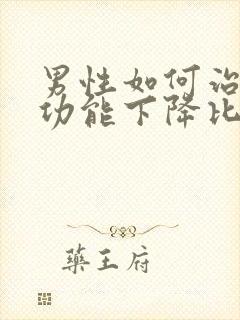 男性如何治
功能下降比
藥王府